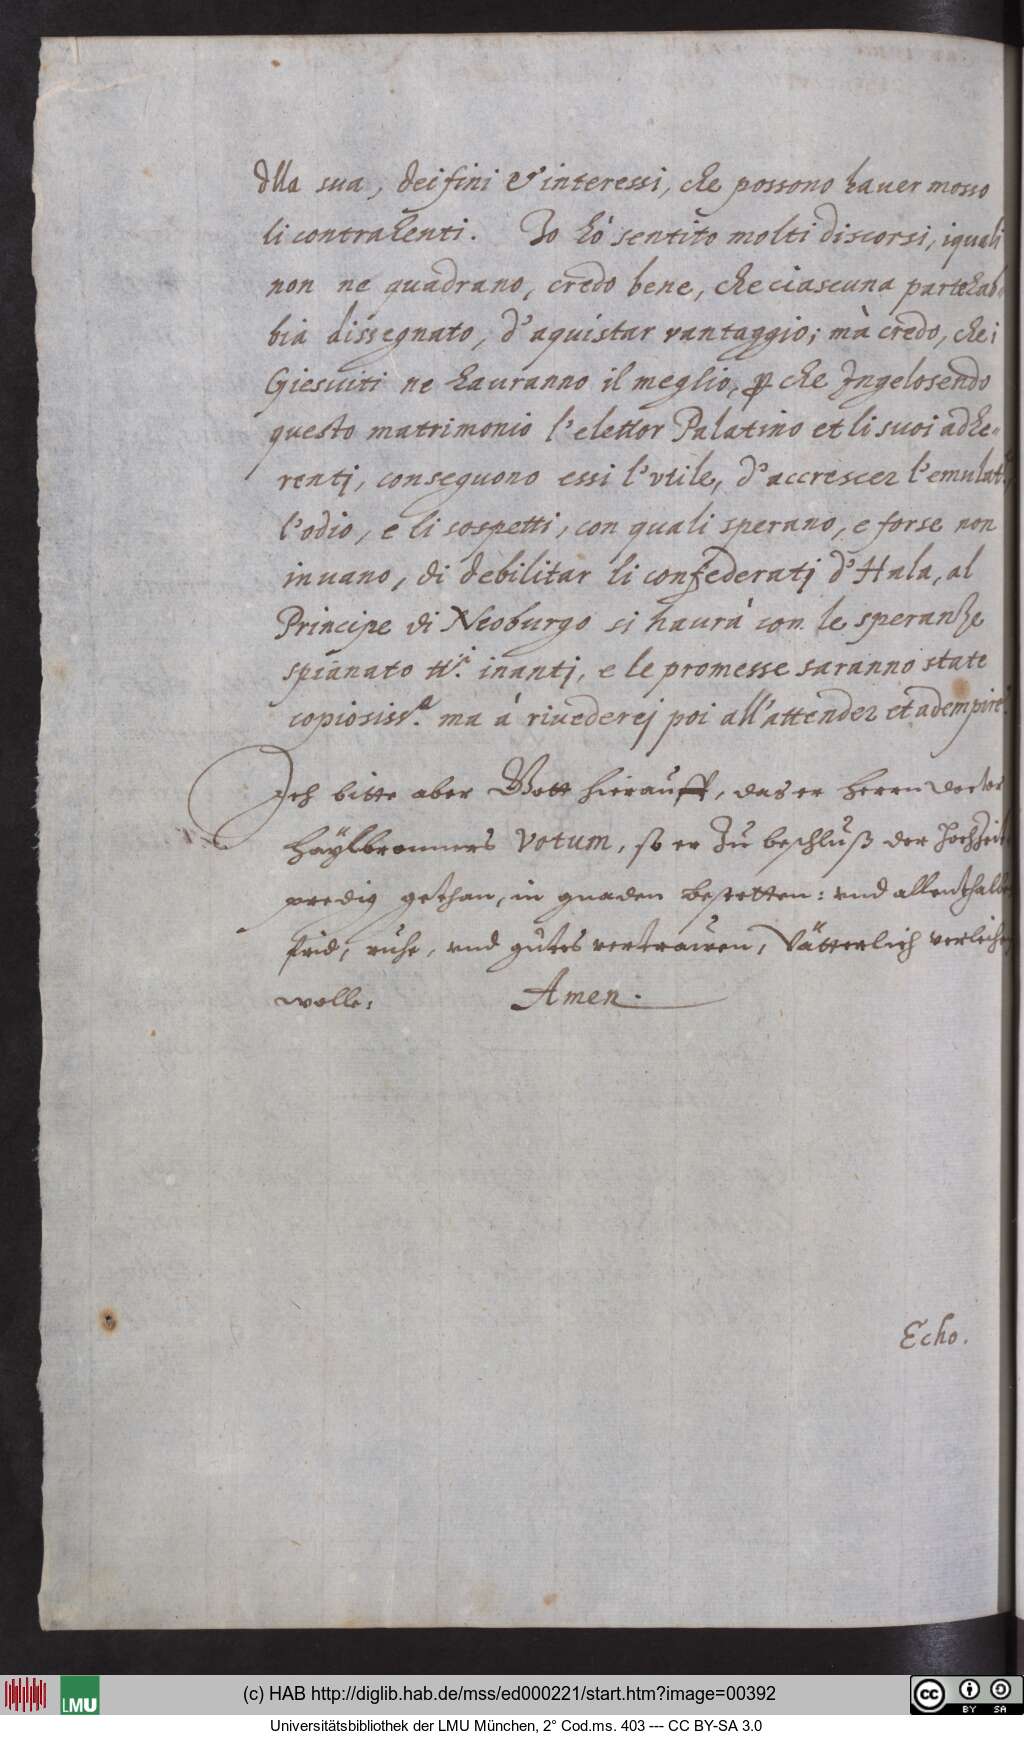 dlla sua, dei fini & interessi, che possono hauer mosso
li contrahenti. Io hò sentito molti discorsi, iquali
non ne quadrano, credo bene, che ciascuna parte hab
bia dissegnato, d'aquistar vantaggio; mà credo, che i
Giesuiti ne hauranno il meglio, ꝑ che Ingelosendo
questo matrimonio l'elettor Palatino et li suoi adhe-
rentj, conseguono essi l'vtile, d'accrescer l'emulat
l'odio, e li sospetti, con quali sperano, e forse non
inuano, di debilitar li confederatj d'Hala, al
Principe di Neoburgo si haurà con le speranze
spianato inantj, e le promesse saranno state
copiosissᵃ. ma à riuederej poi all'attender et adempire.
Ich bitte aber Gott hierauff, das er herrn doctor
Haÿlbronners Votum, so er zu beschluß der Hochzeit
predig gethan, in gnaden bestetten: vnd allenthalbe
frid, ruhe, vnd gutes vertrauen, Vätterlich verleihe
wolle: Amen.
Echo.
LMU
(c) HAB http://diglib.hab.de/mss/ed000221/start.htm?image=00392
cc BY SA
Universitätsbibliothek der LMU München, 2° Cod.ms. 403 --- CC BY-SA 3.0